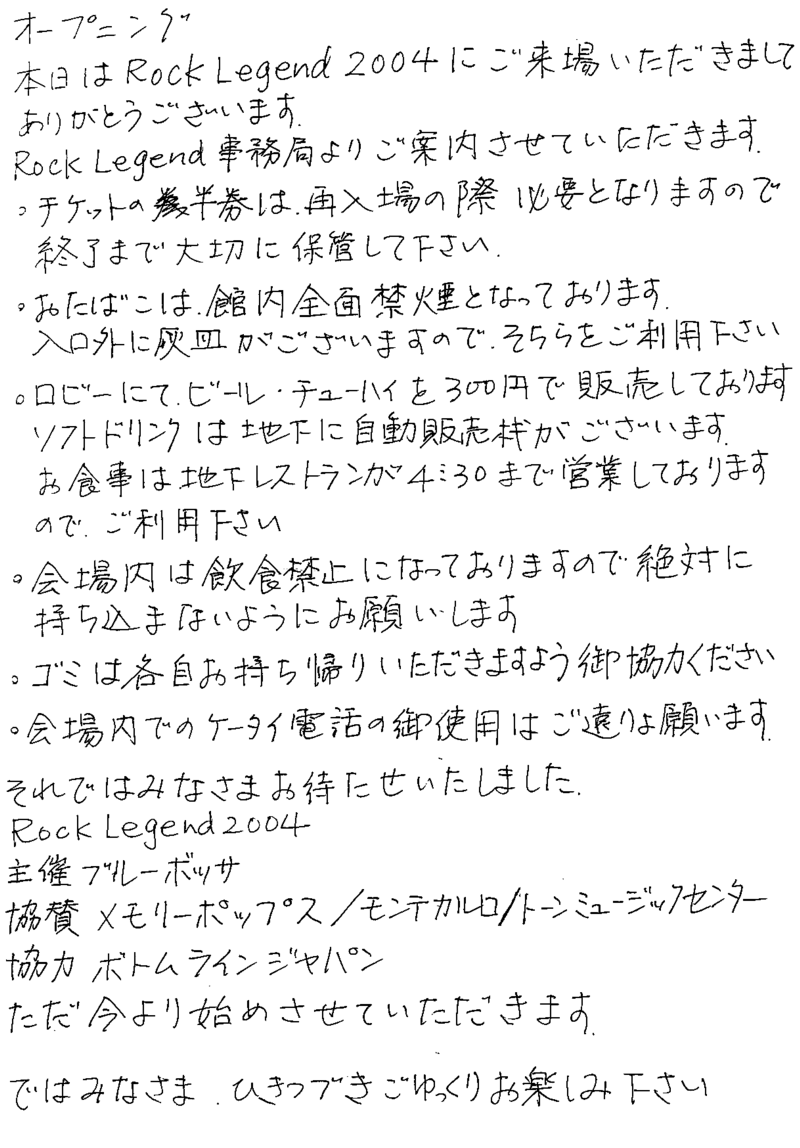 オープニング
本日はRock Legend 2004にご来場いただきまして
ありがとうございます.
Rock Legend 事務局よりご案内させていただきます.
○チケットの半券は、再入場の際 必要となりますので
終了まで大切に保管して下さい.
○おたばこは、館内全面禁煙となっております.
入口外に灰皿がございますので、そちらをご利用下さい
○ロビーにて、ビール・チューハイを300円で販売しております
ソフトドリンクは地下に自動販売机がございます.
お食事は地下レストランが4:30まで営業しております
ので、ご利用下さい
○会場内は飲食禁止になっておりますので絶対に
持ち込まないようにお願いします
○ゴミは各自お持ち帰りいただきますよう御協力ください
○会場内でのケータイ電話の御使用はご遠りょ願います.
それではみなさまお待たせいたしました.
Rock Legend 2004
主催 ブルーボッサ
協賛 メモリーポップス/モンテカルロ/トーンミュージックセンター
協力 ボトムラインジャパン
ただ今より始めさせていただきます.
ではみなさま、ひきつづきごゆっくりお楽しみ下さい